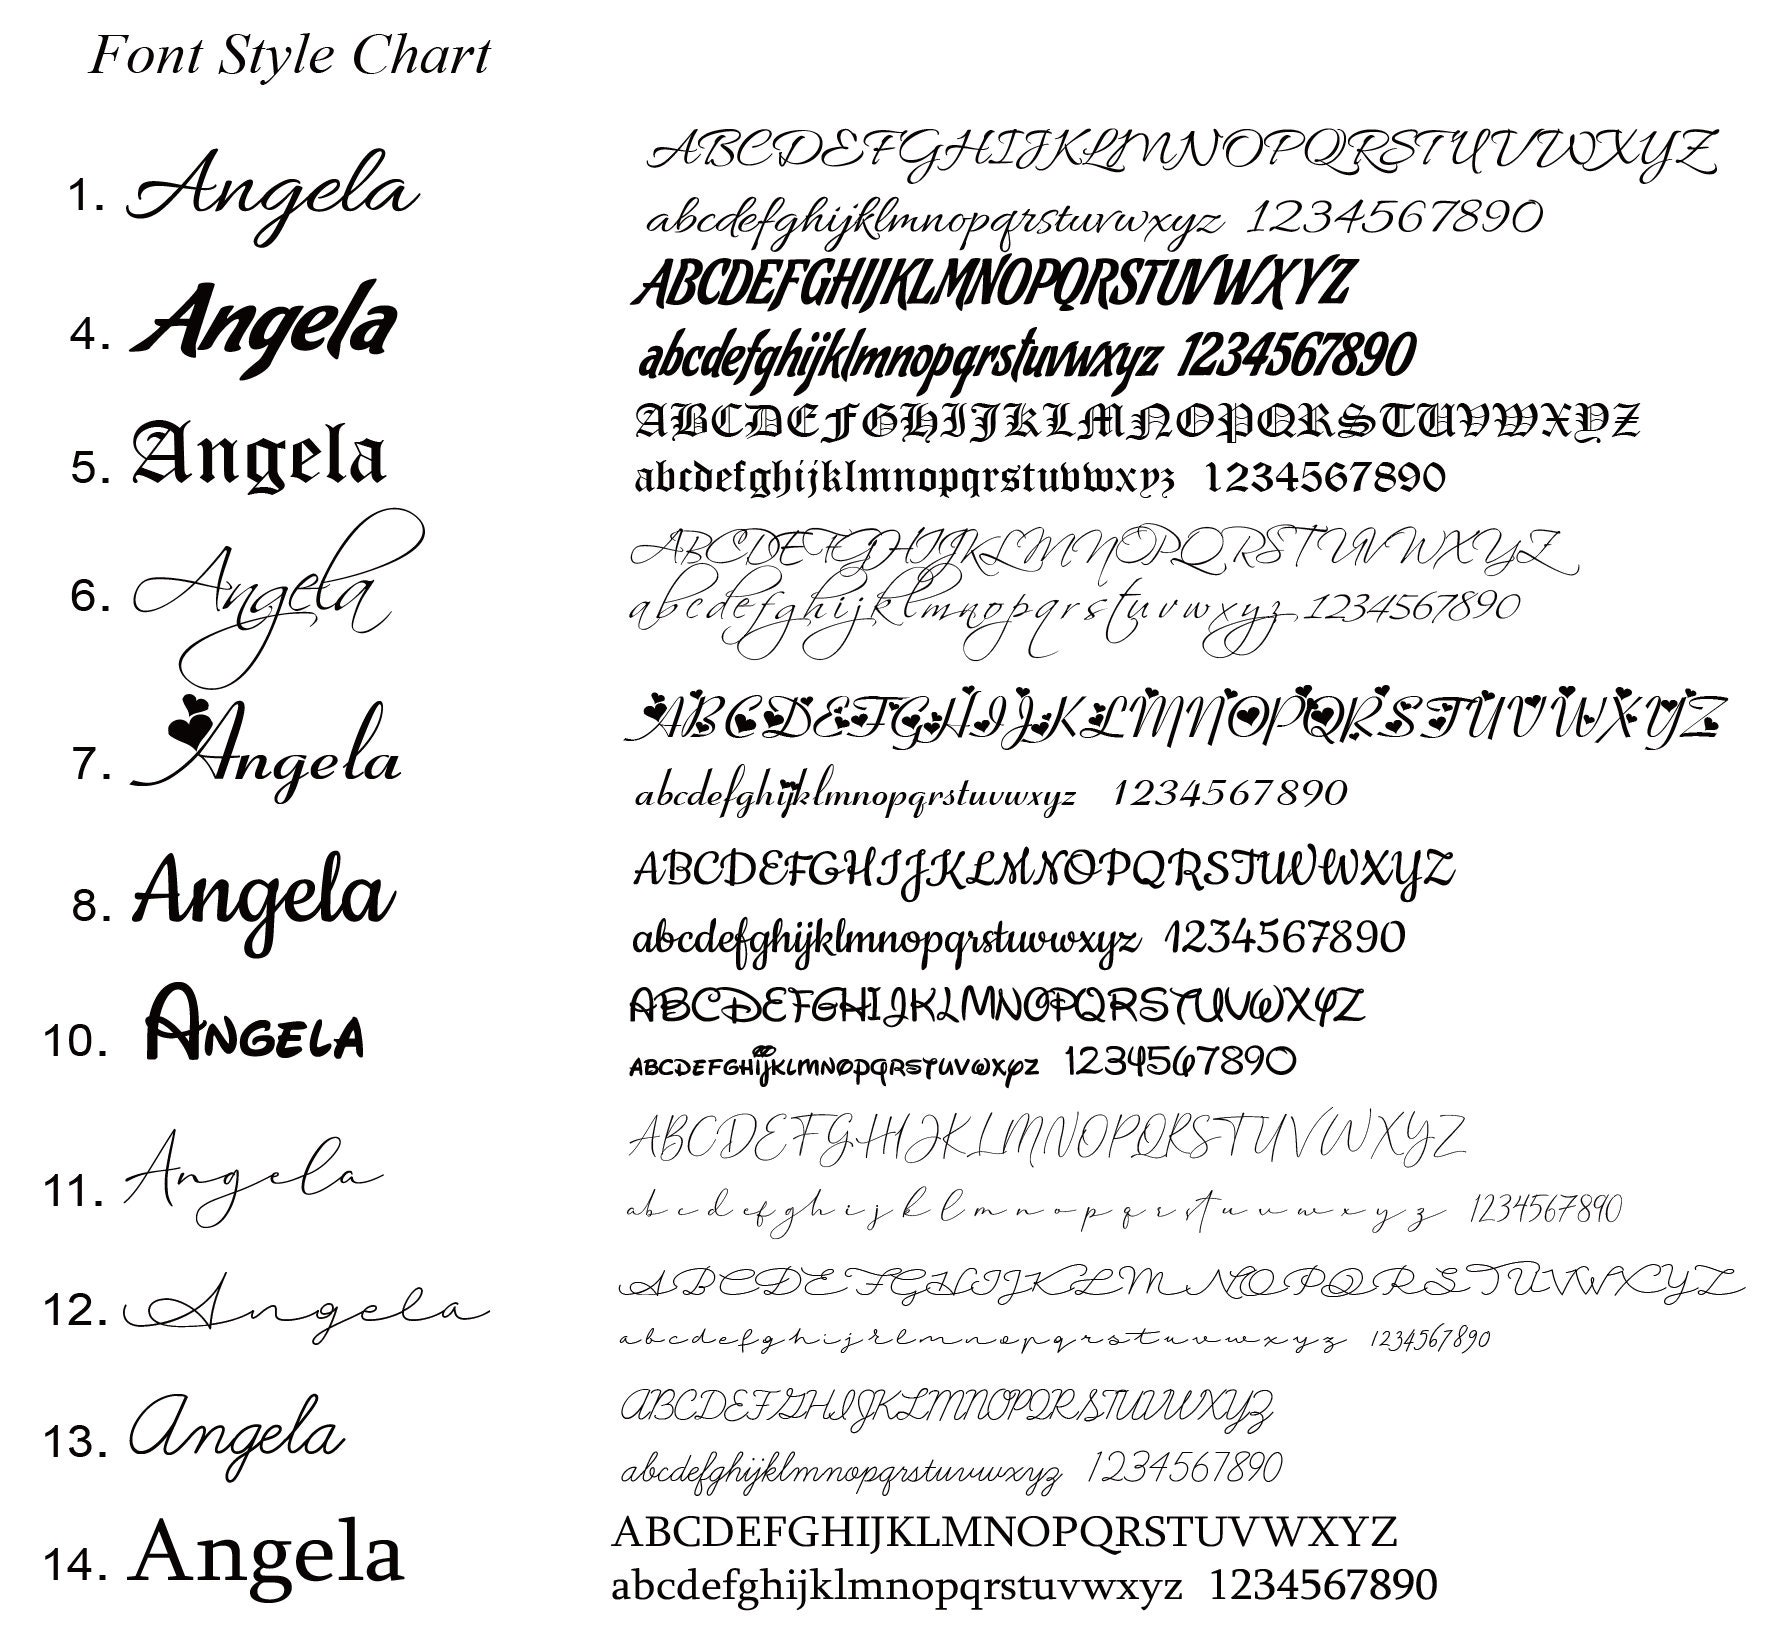 Font Style Chart
1. Angela
ABCDEFGHIJKLMNOPQRSTUVWXYZ
abcdefghijklmnopqrstuvwxyz 1234567890
4. Angela
ABCDEFGHIJKLMNOPQRSTUVWXYZ
abcdefghijklmnopqrstuvwxyz 1234567890
5. Angela
ABCDEFGHIJKLMNOPQRSTUVWXYZ
abcdefghijklmnopqrstuvwxyz 1234567890
6. Angela
ABCDEFGHIJKLMNOPQRSTUVWXYZ
abcdefghijklmnopqrstuvwxyz 1234567890
7. Angela
ABCDEFGHIJKLMNOPQRSTUVWXYZ
abcdefghijklmnopqrstuvwxyz 1234567890
8. Angela
ABCDEFGHIJKLMNOPQRSTUVWXYZ
abcdefghijklmnopqrstuvwxyz 1234567890
10. Angela
ABCDEFGHIJKLMNOPQRSTUVWXYZ
abcdefghijklmnopqrstuvwxyz 1234567890
11. Angela
ABCDEFGHIJKLMNOPQRSTUVWXYZ
abcdefghijklmnopqrstuvwxyz 1234567890
12. Angela
ABCDEFGHIJKLMNOPQRSTUVWXYZ
abcdefghijklmnopqrstuvwxyz 1234567890
13. Angela
ABCDEFGHIJKLMNOPQRSTUVWXYZ
abcdefghijklmnopqrstuvwxyz 1234567890
14. Angela
ABCDEFGHIJKLMNOPQRSTUVWXYZ
abcdefghijklmnopqrstuvwxyz 1234567890